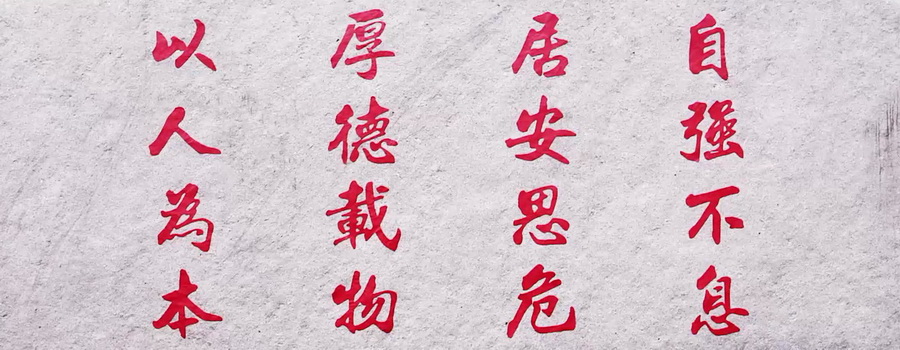 自強不息
居安思危
厚德載物
以人為本